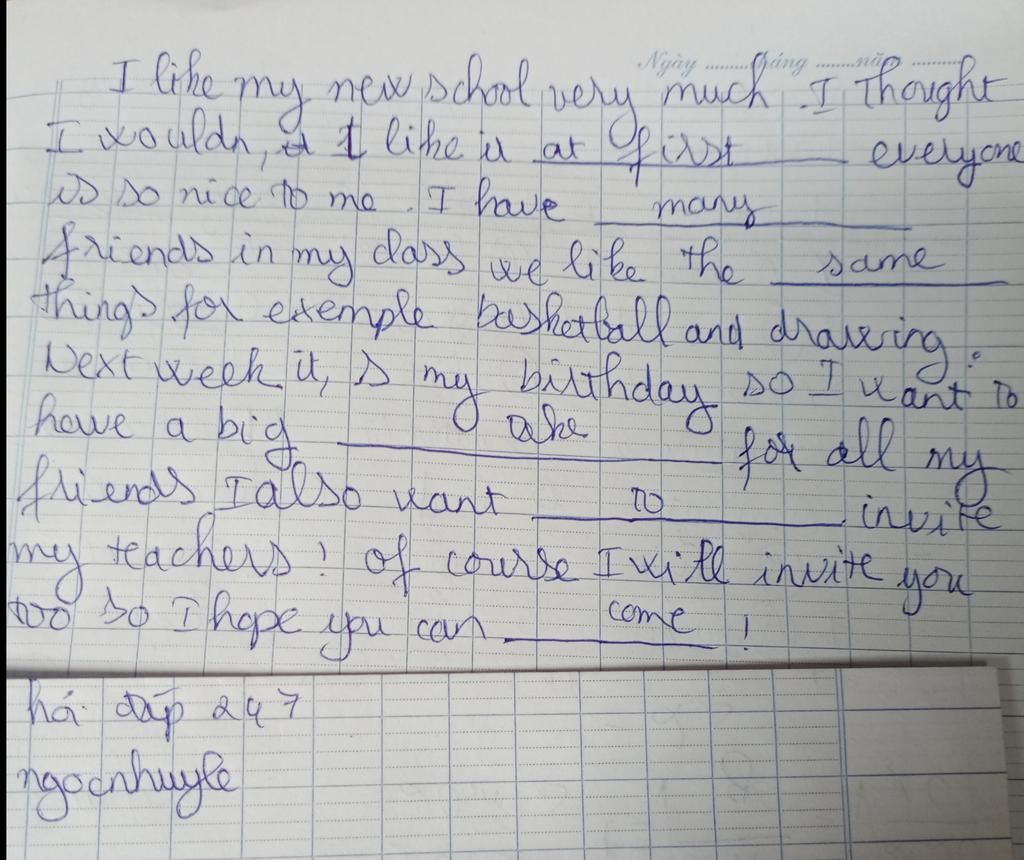 Ngày ........ tháng ........ năm ........
I like my new school very much . I thought
I wouldn, t like it at first everyone
is so nice to me . I have many
friends in my class we like the same
things for exemple basketball and drawing .
Next week it, s my birthday so I want to
have a big cake for all my
friends . I also want to invite
my teachers ! Of course I will invite you
too so I hope you can come !
hỏi đáp 247
ngocnhuyle